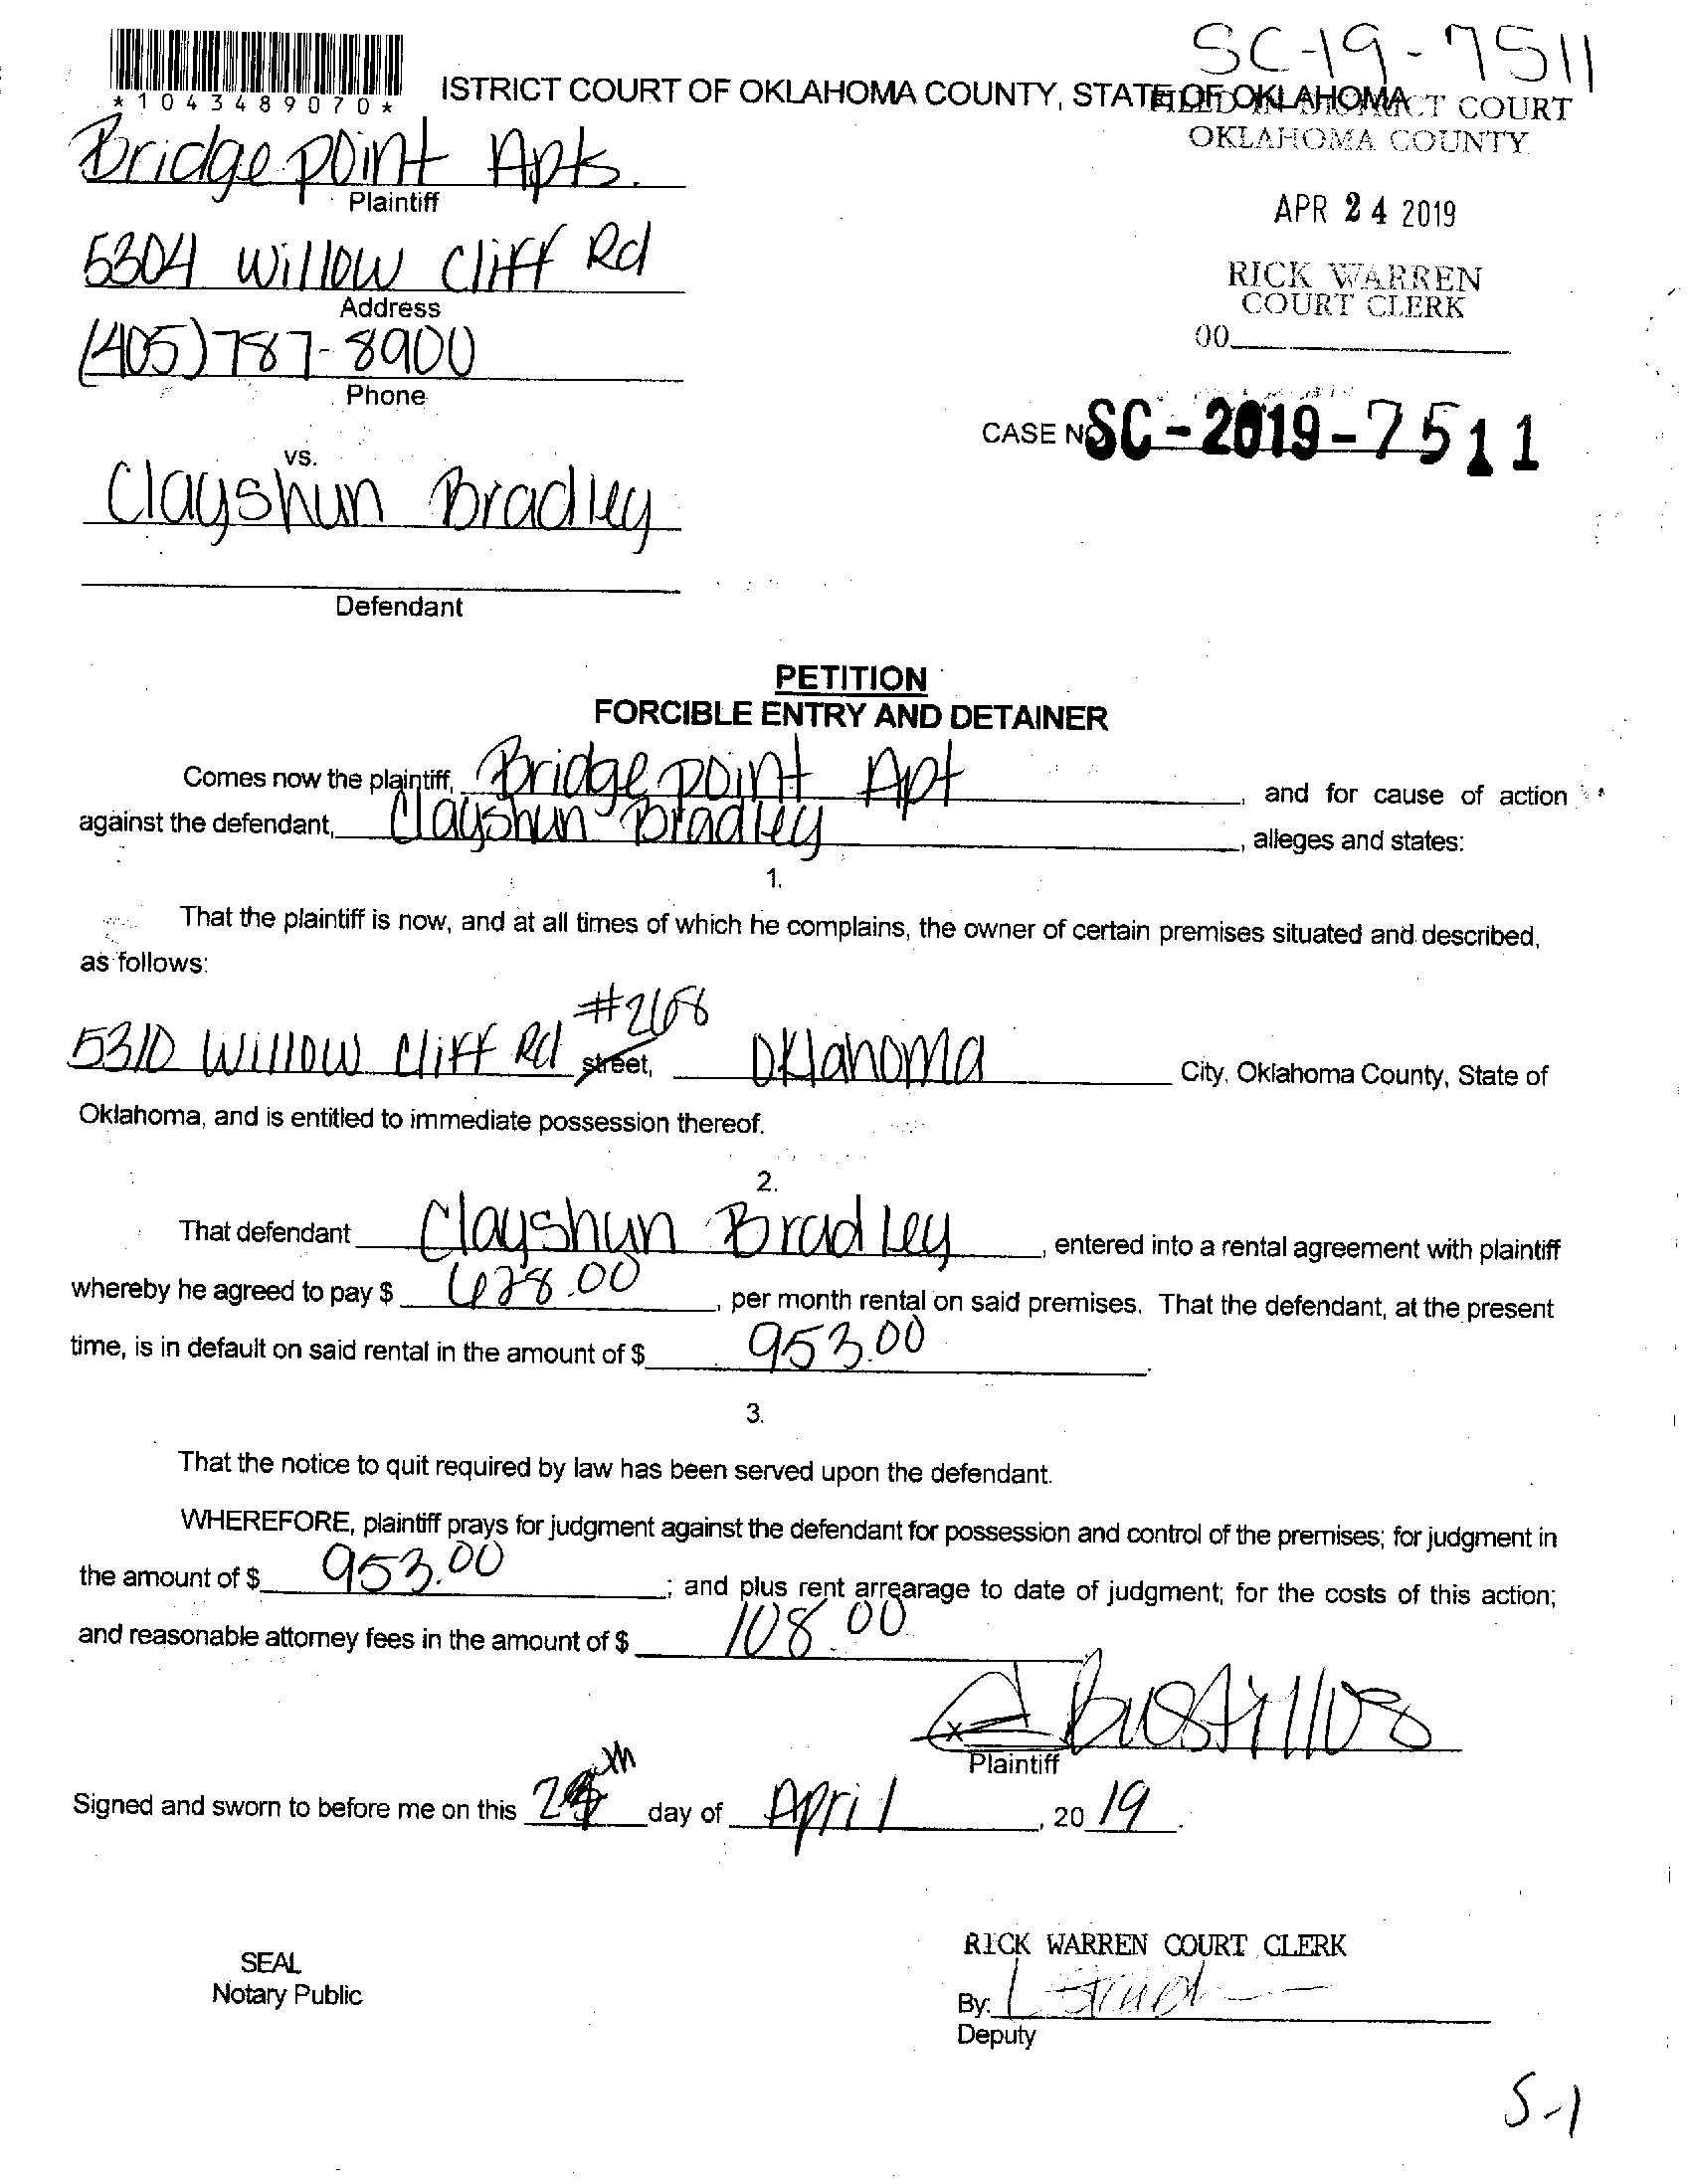 SC-19-7511
*1043489070*
ISTRICT COURT OF OKLAHOMA COUNTY, STATE OF OKLAHOMA
COURT
OKLAHOMA COUNTY
Bridgepoint Apts.
Plaintiff
APR 24 2019
5304 Willow Cliff Rd
Address
RICK WARREN
COURT CLERK
00
(405)787-8900
Phone
CASE NO SC-2019-7511
vs.
Clayshun Bradley
Defendant
PETITION
FORCIBLE ENTRY AND DETAINER
Comes now the plaintiff, Bridgepoint Apt, and for cause of action
against the defendant, Clayshun Bradley, alleges and states:
1.
That the plaintiff is now, and at all times of which he complains, the owner of certain premises situated and described,
as follows:
#268
5310 Willow Cliff Rd street, Oklahoma City, Oklahoma County, State of
Oklahoma, and is entitled to immediate possession thereof.
2.
That defendant Clayshun Bradley, entered into a rental agreement with plaintiff
whereby he agreed to pay $ 628.00, per month rental on said premises. That the defendant, at the present
time, is in default on said rental in the amount of $ 953.00.
3.
That the notice to quit required by law has been served upon the defendant.
WHEREFORE, plaintiff prays for judgment against the defendant for possession and control of the premises; for judgment in
the amount of $ 953.00; and plus rent arrearage to date of judgment; for the costs of this action;
and reasonable attorney fees in the amount of $ 108.00
x Bustillos
Plaintiff
Signed and sworn to before me on this 24th day of April, 2019.
RICK WARREN COURT CLERK
SEAL
Notary Public
By:
Deputy
S-1